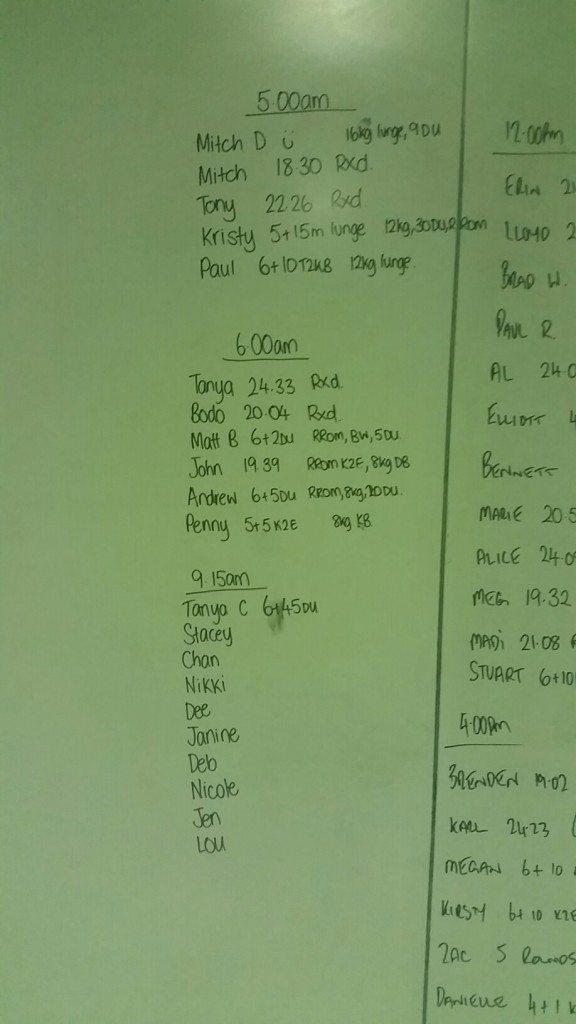 5.00am
Mitch D ü 16kg lunge, 9DU
Mitch 18.30 Rxd.
Tony 22.26 Rxd.
Kristy 5+15m lunge 12kg, 30DU, RROM
Paul 6+10T2KB 12kg lunge.
6.00am
Tanya 24.33 Rxd.
Bodo 20.04 Rxd.
Matt B 6+2DU RROM, BW, 5DU.
John 19.39 RROM K2E, 8kg DB
Andrew 6+5DU RROM, 8kg, 20DU.
Penny 5+5K2E 8kg KB
9.15am
Tanya C 6+45DU
Stacey
Chan
Nikki
Dee
Janine
Deb
Nicole
Jen
Lou
12.00pm
ERIN
LLOYD
BRAD W.
PAUL R.
AL 24.0
ELLIOTT
BENNETT
MARIE 20.5
ALICE 24.0
MEG 19.32
MADi 21.08
STUART 6+10
4.00pm
BRENDEN 19.02
KARL 24.23
MEGAN 6+10
KIRSTY 6+10 K2E
ZAC 5
DANIELLE 4+1 K